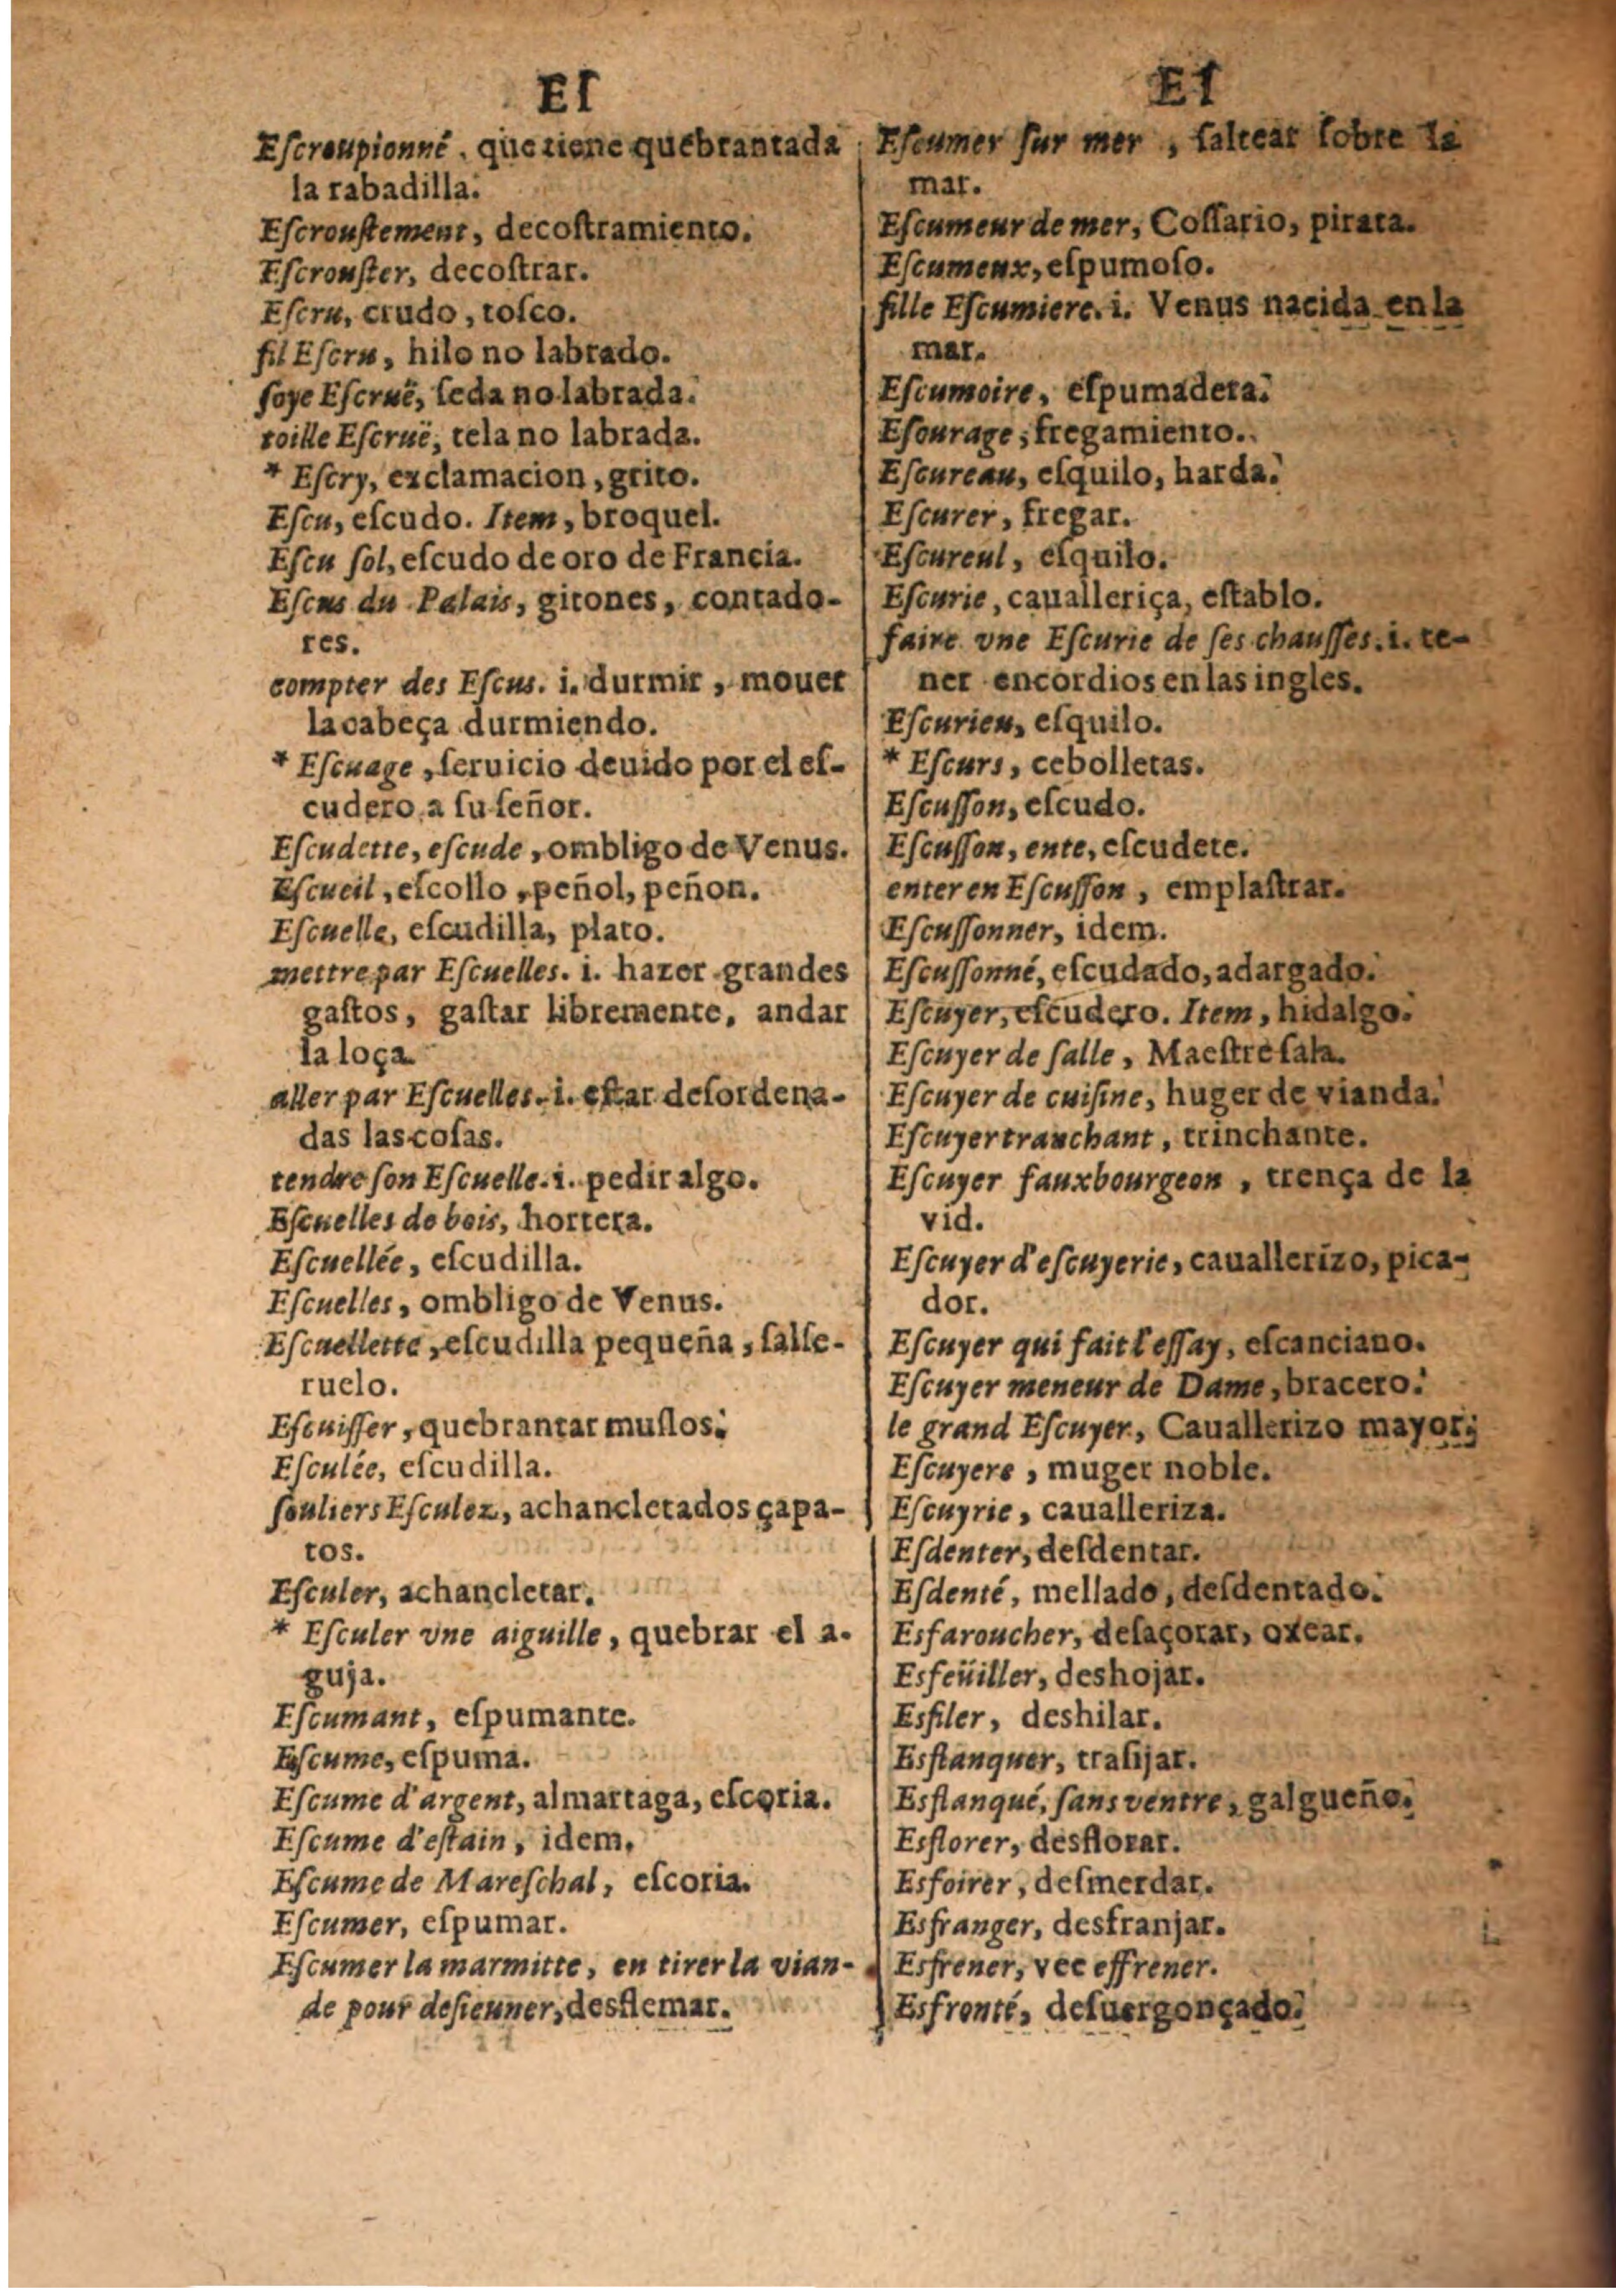 Eſ
Eſcroupionné, que tiene quebrantada
la rabadilla.
Eſcrouſtement, decoſtramiento.
Eſcrouſter, decoſtrar.
Eſcru, crudo, toſco.
fil Eſcru, hilo no labrado.
ſoye Eſcruë, ſeda no labrada.
toille Eſcruë, tela no labrada.
* Eſcry, exclamacion, grito.
Eſcu, eſcudo. Item, broquel.
Eſcu ſol, eſcudo de oro de Francia.
Eſcus du Palais, gitones, contado-
res.
compter des Eſcus. i. durmir, mouer
la cabeça durmiendo.
* Eſcuage, ſeruicio deuido por el eſ-
cudero a ſu ſeñor.
Eſcudette, eſcude, ombligo de Venus.
Eſcueil, eſcollo, peñol, peñon.
Eſcuelle, eſcudilla, plato.
mettre par Eſcuelles. i. hazer grandes
gaſtos, gaſtar libremente, andar
la loça.
aller par Eſcuelles. i. eſtar deſordena-
das las coſas.
tendre ſon Eſcuelle. i. pedir algo.
Eſcuelles de bois, hortera.
Eſcuellée, eſcudilla.
Eſcuelles, ombligo de Venus.
Eſcuellette, eſcudilla pequeña, ſalſe-
ruelo.
Eſcuiſſer, quebrantar muſlos.
Eſculée, eſcudilla.
ſouliers Eſculez, achancletados çapa-
tos.
Eſculer, achancletar.
* Eſculer vne aiguille, quebrar el a-
guja.
Eſcumant, eſpumante.
Eſcume, eſpuma.
Eſcume d'argent, almartaga, eſcoria.
Eſcume d'eſtain, idem.
Eſcume de Mareſchal, eſcoria.
Eſcumer, eſpumar.
Eſcumer la marmitte, en tirer la vian-
de pour deſieuner, desflemar.
Eſ
Eſcumer ſur mer, ſaltear ſobre la
mar.
Eſcumeur de mer, Coſſario, pirata.
Eſcumeux, eſpumoſo.
fille Eſcumiere. i. Venus nacida en la
mar.
Eſcumoire, eſpumadera.
Eſourage, fregamiento.
Eſcureau, eſquilo, harda.
Eſcurer, fregar.
Eſcureul, eſquilo.
Eſcurie, caualleriça, eſtablo.
faire vne Eſcurie de ſes chauſſes. i. te-
ner encordios en las ingles.
Eſcurieu, eſquilo.
* Eſcurs, cebolletas.
Eſcuſſon, eſcudo.
Eſcuſſon, ente, eſcudete.
enter en Eſcuſſon, emplaſtrar.
Eſcuſſonner, idem.
Eſcuſſonné, eſcudado, adargado.
Eſcuyer, eſcudero. Item, hidalgo.
Eſcuyer de ſalle, Maeſtre ſala.
Eſcuyer de cuiſine, huger de vianda.
Eſcuyer tranchant, trinchante.
Eſcuyer fauxbourgeon, trença de la
vid.
Eſcuyer d'eſcuyerie, cauallerizo, pica-
dor.
Eſcuyer qui fait l'eſſay, eſcanciano.
Eſcuyer meneur de Dame, bracero.
le grand Eſcuyer, Cauallerizo mayor.
Eſcuyere, muger noble.
Eſcuyrie, caualleriza.
Eſdenter, deſdentar.
Eſdenté, mellado, deſdentado.
Esfaroucher, deſaçorar, oxear.
Esfeüiller, deshojar.
Esfiler, deshilar.
Esflanquer, traſijar.
Esflanqué, ſans ventre, galgueño.
Esflorer, desflorar.
Esfoirer, deſmerdar.
Esfranger, desfranjar.
Esfrener, vee effrener.
Esfronté, deſuergonçado.